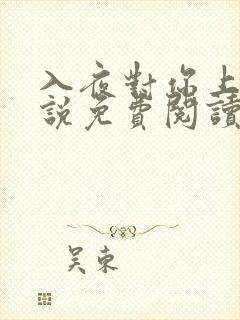 入夜對你上
說免費閱讀
吴東